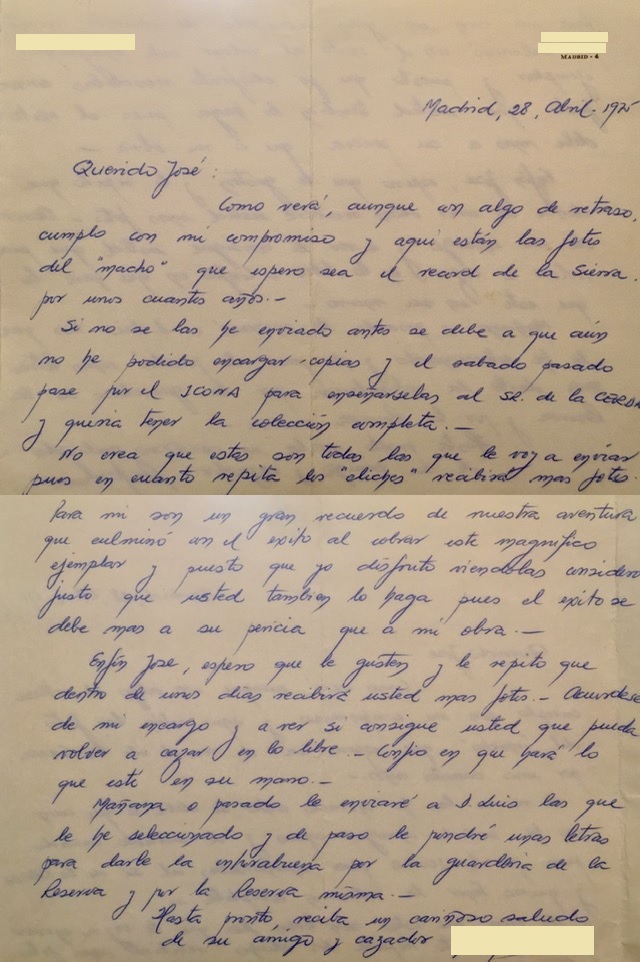 MADRID - 6
Madrid, 28, Abril - 1975
Querido José:
Como verá, aunque con algo de retraso,
cumplo con mi compromiso y aqui están las fotos
del "macho" que espero sea el record de la Sierra.
por unos cuantos años.-
Si no se las he enviado antes se debe a que aún
no he podido encargar copias y el sabado pasado
pase por el ICONA para enseñarselas al SR. de la CERDA
y queria tener la colección completa.-
No crea que estas son todas las que le voy a enviar
pues en cuanto repita los "cliches" recibirá mas fotos.
Para mi son un gran recuerdo de nuestra aventura
que culminó con el exito al cobrar este magnifico
ejemplar y puesto que yo disfruto viendolas considero
justo que usted tambien lo haga pues el exito se
debe mas a su pericia que a mi obra.-
Enfin Jose, espero que le gusten y le repito que
dentro de unos dias recibirá usted mas fotos.- Acuerdese
de mi encargo y a ver si consigue usted que pueda
volver a cazar en lo libre.- Confio en que hará lo
que esté en su mano.-
Mañana o pasado le enviaré a D. Luis las que
le he seleccionado y de paso le pondré unas letras
para darle la enhorabuena por la guarderia de la
Reserva y por la Reserva misma.-
Hasta pronto, reciba un cariñoso saludo
de su amigo y cazador